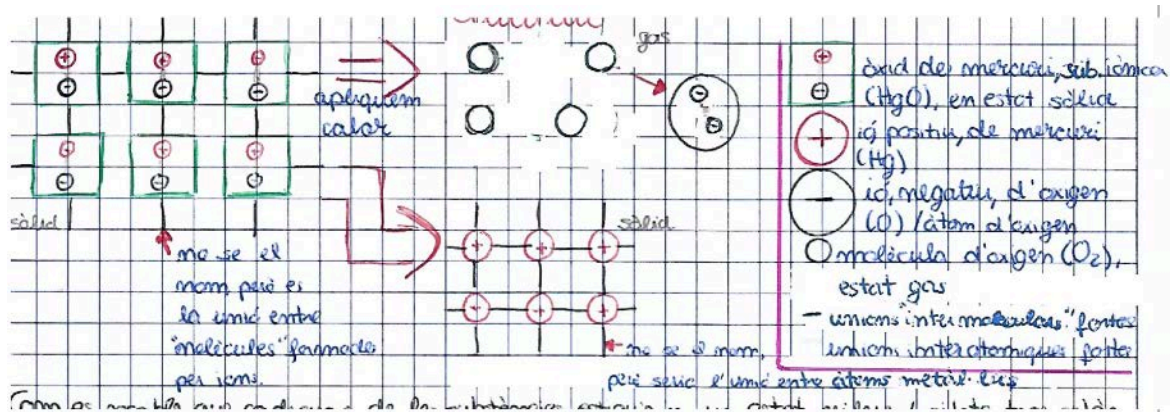 gas
apliquem
calor
sòlid
no se el
nom, però es
la unió entre
"molècules" formades
per ions.
sòlid
no se el nom,
però seria l'unió entre àtoms metàl·lics
òxid de mercuri, sub. iònica
(HgO), en estat sòlid
ió positiu, de mercuri
(Hg)
ió, negatiu, d'oxigen
(O) / àtom d'oxigen
molècula d'oxigen (O₂),
estat gas
unions "intermoleculars" fortes
unions interatòmiques fortes
Com es